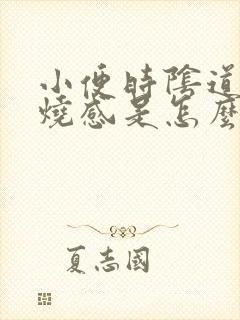 小便時陰道
燒感是怎麼
夏志國